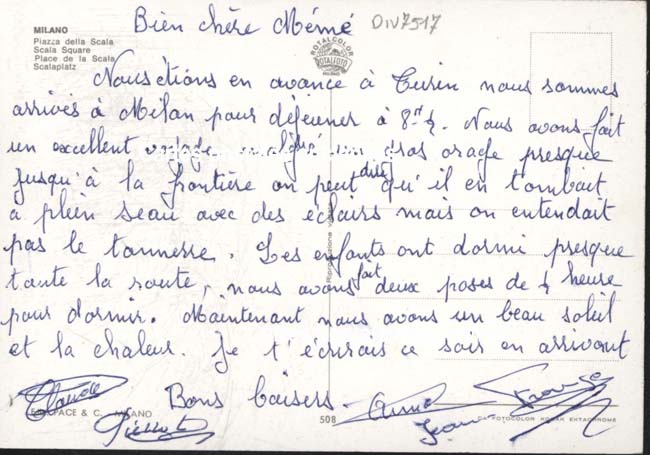 Bien chère Mémé
DIV7517
MILANO
Piazza della Scala
Scala Square
Place de la Scala
Scalaplatz
ROTALCOLOR
ROTALFOTO
MILANO
Nous étions en avance à Turin nous sommes
arrivés à Milan pour déjeuner à 8h ½. Nous avons fait
un excellent voyage malgré un gros orage presque
jusqu'à la frontière on peut dire qu'il en tombait
à plein seau avec des éclairs mais on entendait
pas le tonnesse. Les enfants ont dormi presque
toute la route, nous avons fait deux poses de ½ heure
pour dormir. Maintenant nous avons un beau soleil
et la chaleur. Je t'écrirais ce soir en arrivant
Bons baisers.
Claude
Pierrot
Anna
Jean-
France
PACE & C. - MILANO
508
FOTOCOLOR KODAK EKTACHROME